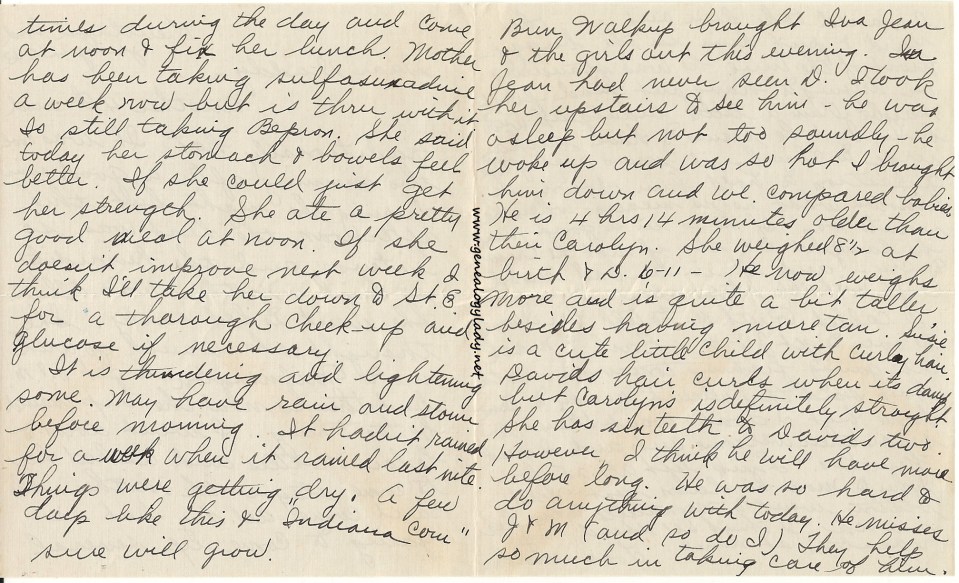 times during the day and come
at noon & fix her lunch. Mother
has been taking sulfasuxadine
a week now but is thru with it
Is still taking Bepron. She said
today her stomach & bowels feel
better. If she could just get
her strength. She ate a pretty
good meal at noon. If she
doesn't improve next week I
think I'll take her down to St. E
for a thorough check-up and
glucose if necessary.
It is thundering and lightening
some. May have rain and storm
before morning. It hadn't rained
for a week when it rained last nite.
Things were getting dry. A few
days like this & "Indiana corn"
sure will grow.
Bun Walkup brought Iva Jean
& the girls out this evening. Iva
Jean had never seen D. I took
her upstairs to see him - he was
asleep but not too soundly - he
woke up and was so hot I brought
him down and we compared babies.
He is 4 hrs 14 minutes older than
their Carolyn. She weighed 8½ at
birth & D. 6-11 - He now weighs
more and is quite a bit taller
besides having more tan.
is a cute little child with curley hair.
Davids hair curls when its damp
but Carolyn's is definitely straight
She has six teeth to Davids two.
However, I think he will have more
before long. He was so hard to
do anything with today. He misses
J & M (and so do I) They help
so much in taking care of him.
www.genealogylady.net